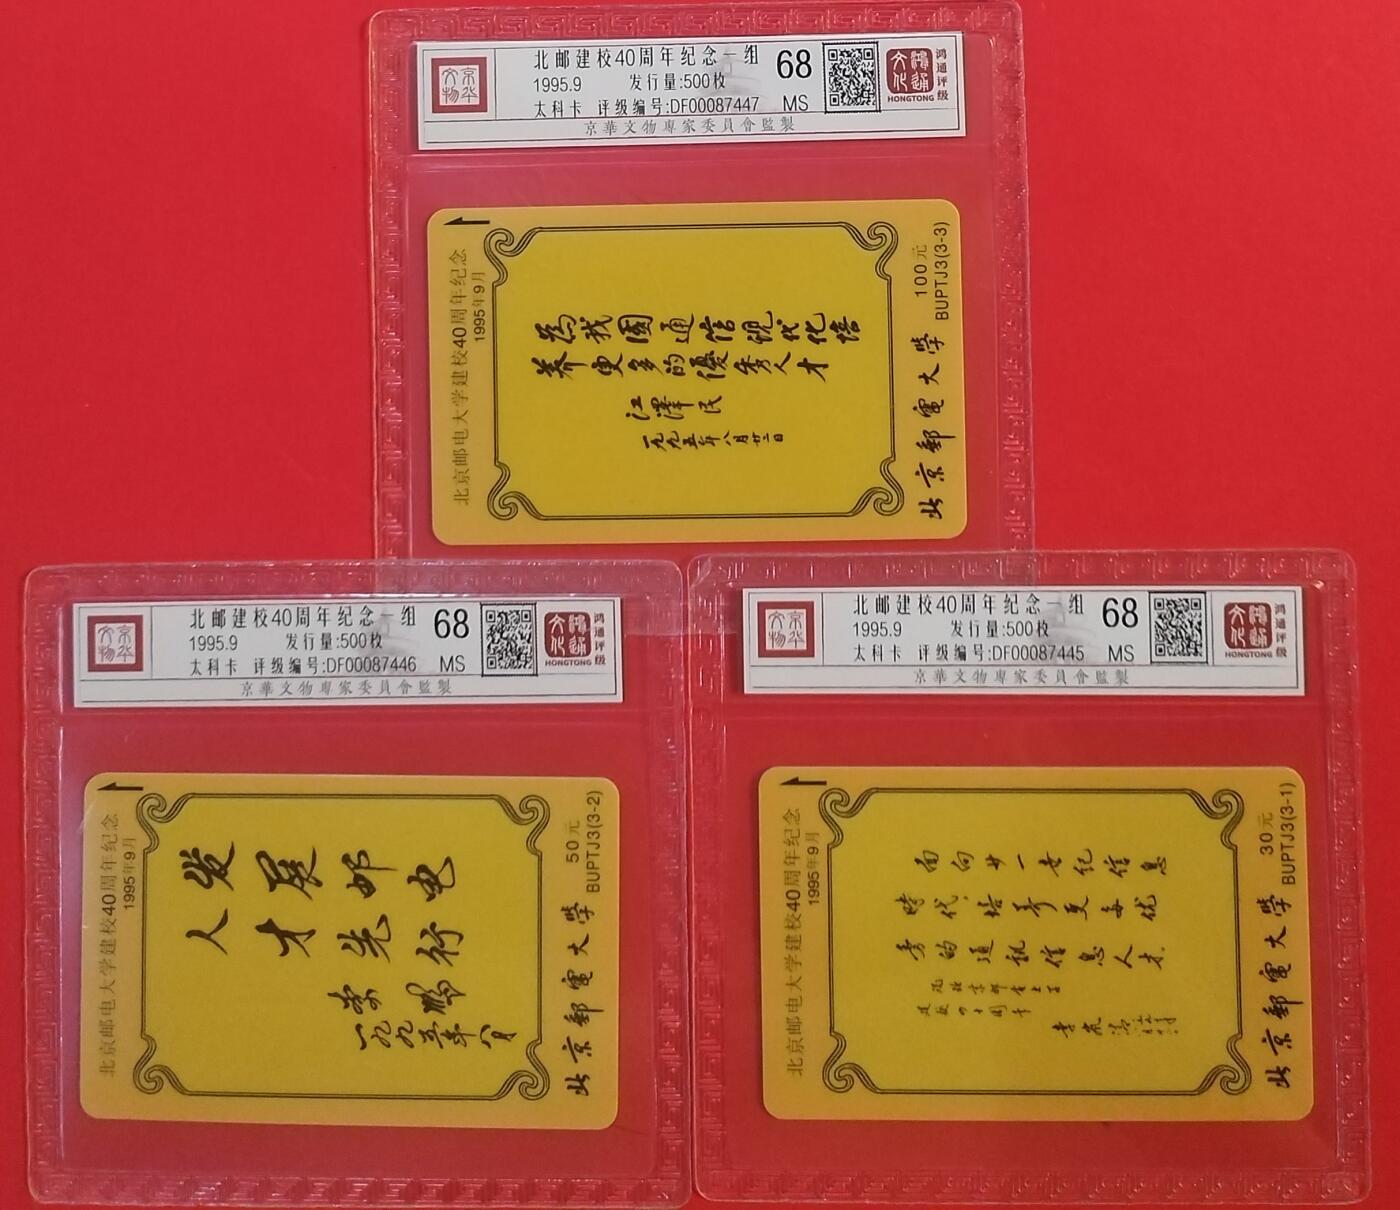 京华文物
北邮建校40周年纪念一组
1995.9 发行量:500枚
太科卡 评级编号:DF00087447
68
MS
鸿通文化
HONGTONG
鸿通评级
京華文物專家委員會監製
北京邮电大学建校40周年纪念
1995年9月
為我國通信现代化培
养更多的優秀人才
江澤民
一九九五年八月廿二日
100元
BUPTJ3(3-3)
北京郵電大學
京华文物
北邮建校40周年纪念一组
1995.9 发行量:500枚
太科卡 评级编号:DF00087446
68
MS
鸿通文化
HONGTONG
鸿通评级
京華文物專家委員會監製
北京邮电大学建校40周年纪念
1995年9月
发展邮电
人才先行
李鹏
一九九五年八月
50元
BUPTJ3(3-2)
北京郵電大學
京华文物
北邮建校40周年纪念一组
1995.9 发行量:500枚
太科卡 评级编号:DF00087445
68
MS
鸿通文化
HONGTONG
鸿通评级
京華文物專家委員會監製
北京邮电大学建校40周年纪念
1995年9月
面向廿一世纪信息
時代培养更多优
秀的通讯信息人才
建校四十周年
李岚清
30元
BUPTJ3(3-1)
北京郵電大學